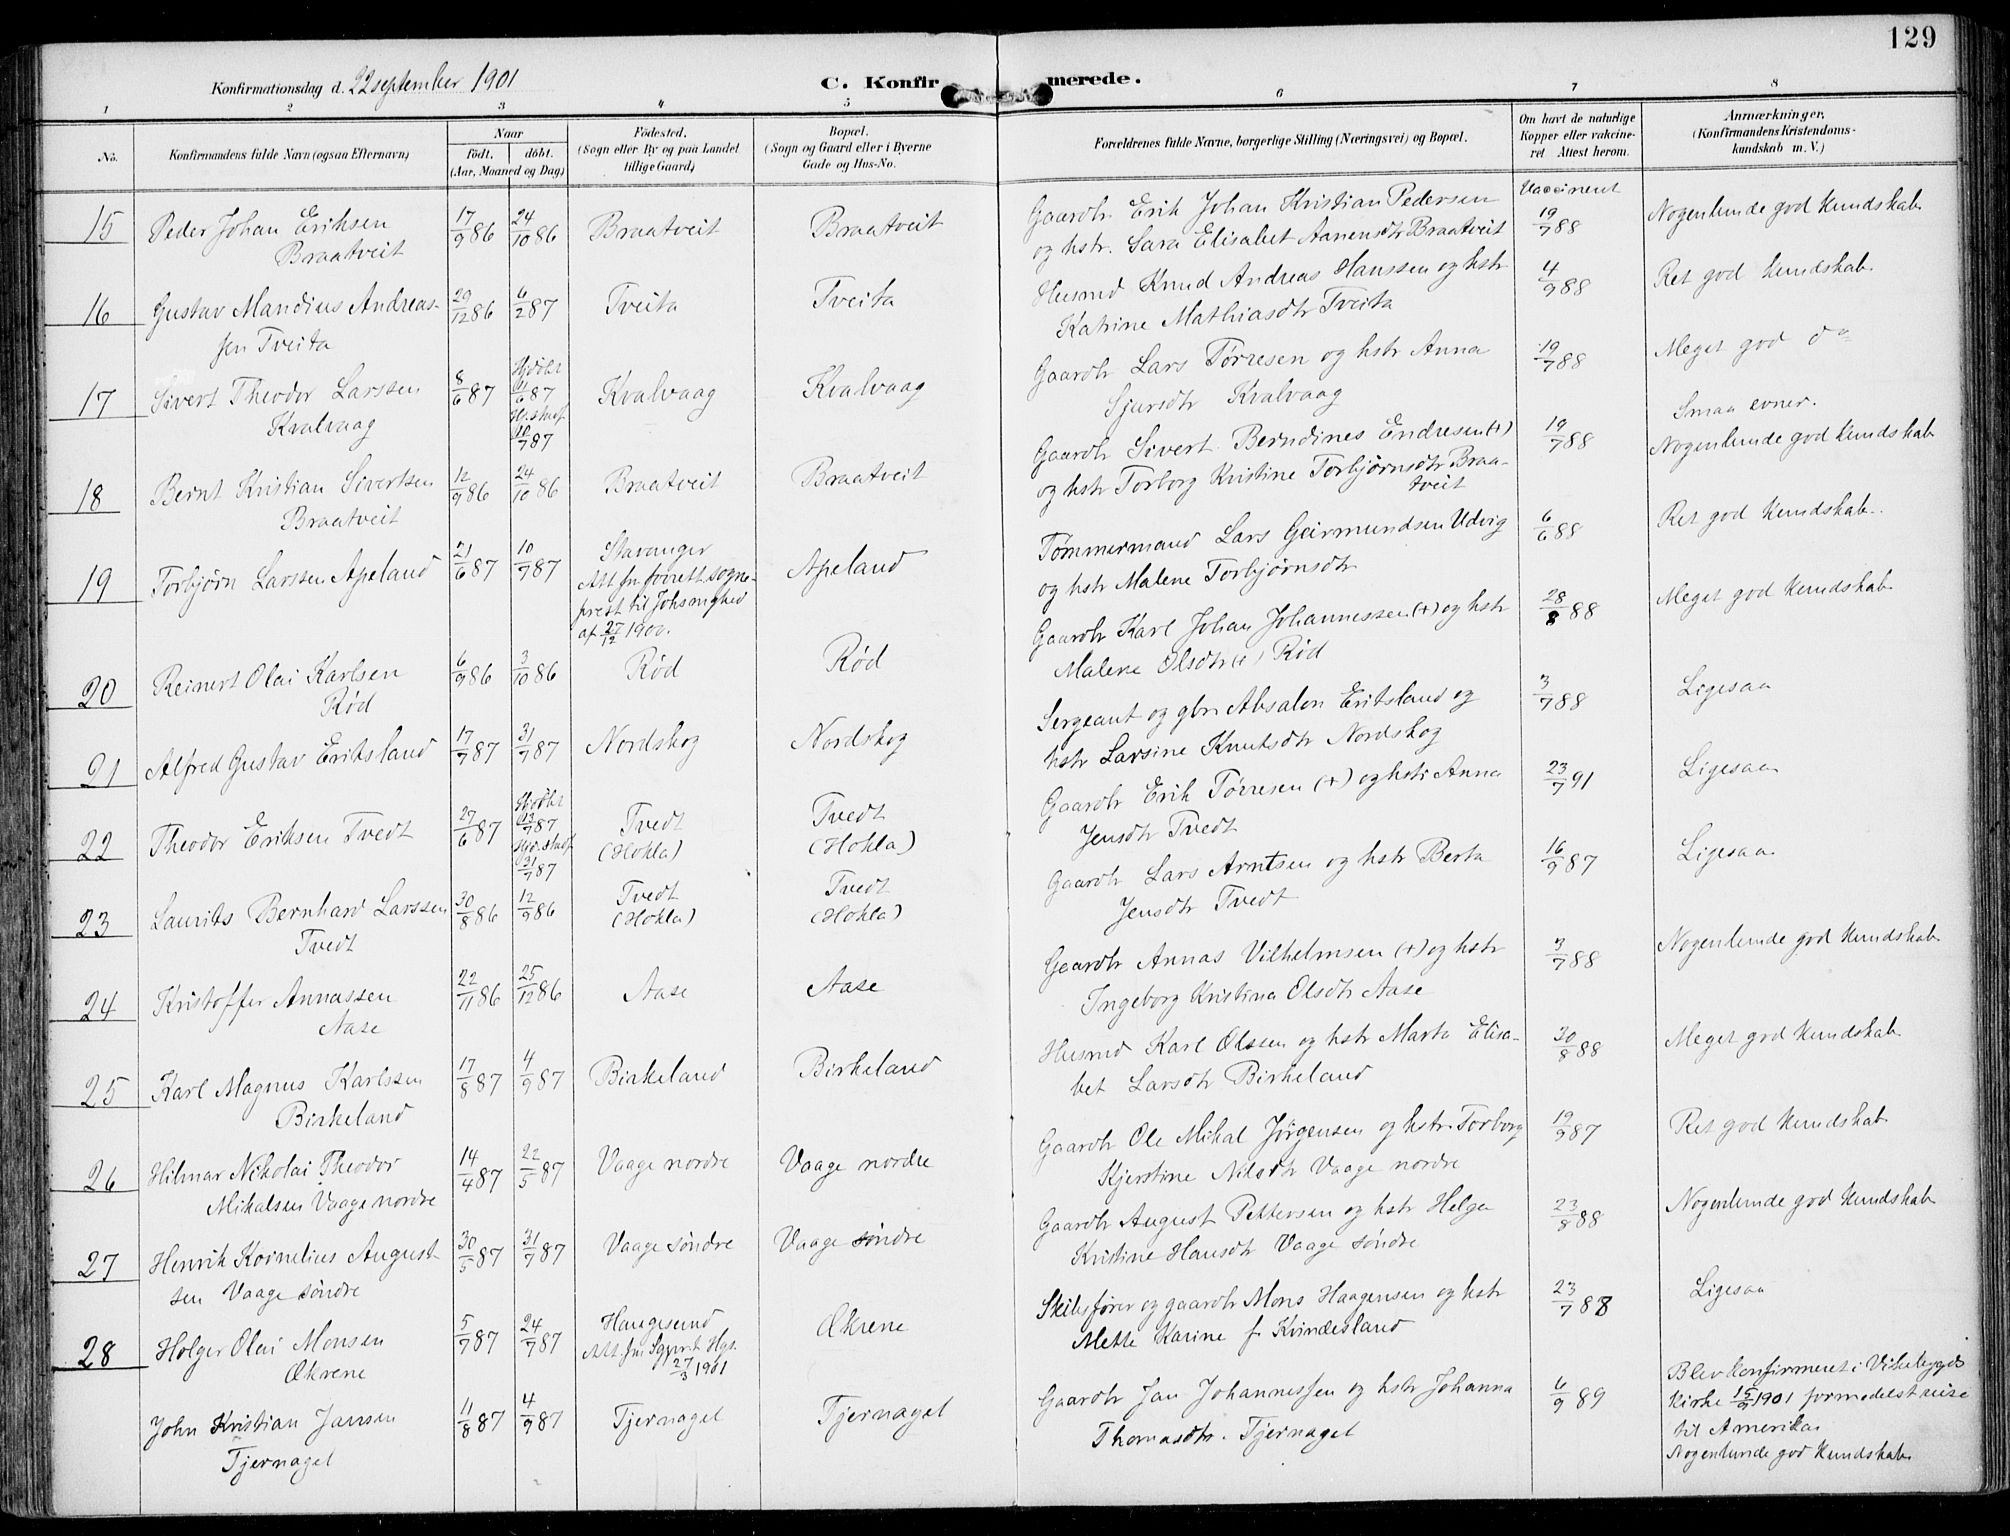 129
Konfirmationsdag d. 22 september 1901
C. Konfirmerede.
1 2 3 4 5 6 7 8
No. Konfirmandens fulde Navn (ogsaa Efternavn) Naar født. døbt. (Aar, Maaned og Dag) Fødested. (Sogn eller By og paa Landet tillige Gaard) Bopæl. (Sogn og Gaard eller i Byerne Gade og Hus-No. Forældrenes fulde Navne, borgerlige Stilling (Næringsvei) og Bopæl. Om havt de naturlige Kopper eller vakcineret Attest herom. Anmærkninger, (Konfirmandens Kristendomskundskab m. V.)
Vaccineret
15 Peder Johan Eriksen 17/9 86 24/10 86 Braatveit Braatveit Gaardbr Erik Johan Kristian Pedersen 19/7 88 Nogenlunde god kundskab
Braatveit og hstr. Sara Elisabet Aanensdtr Braatveit
16 Gustav Mandius Andreas- 29/12 86 6/2 87 Tveita Tveita Husmd Knud Andreas Hanssen og hstr 4/9 88 Ret god kundskab
sen Tveita Katrine Mathiasdtr Tveita
17 Sivert Theodor Larssen 8/6 87 Hjdøbt 11/6 87 Kvalvaag Kvalvaag Gaardbr Lars Tørresen og hstr Anna 19/7 88 Meget god do
Kvalvaag 10/7 87 Sjursdtr Kvalvaag
Smaa evner.
18 Bernt Kristian Sivertsen 12/9 86 24/10 86 Braatveit Braatveit Gaardbr Sivert Berndines Endresen (+) 19/7 88 Nogenlunde god kundskab
Braatveit og hstr Torborg Kristine Torbjørnsdtr Braa-
tveit
19 Torbjørn Larssen Apeland 21/6 87 10/7 87 Stavanger Apeland Tømmermand Lars Geirmundsen Udvig 6/6 88 Ret god kundskab.
Att fr forrett. sogne- og hstr Malene Torbjørnsdtr
prest til Johs mghed
af 27/12 1900.
20 Reinert Olai Karlsen 6/9 86 3/10 86 Rød Rød Gaardbr Karl Johan Johannessen (+) og hstr 28/8 88 Meget god kundskab
Rød Malene Olsdtr (+) Rød
21 Alfred Gustav Eritsland 17/7 87 31/7 87 Nordskog Nordskog Sergeant og gbr. Absalon Eritsland og 3/7 88 Ligesaa
hstr Larsine Knutsdtr Nordskog
22 Theodor Eriksen Tvedt 27/6 87 Hjdøbt 13/7 87 Tvedt Tvedt Gaardbr Erik Tørresen (+) og hstr Anna 23/7 91 Ligesaa
31/7 87 (Hokla) (Hokla) Jensdtr Tvedt
23 Laurits Bernhard Larssen 30/8 86 12/9 86 Tvedt Tvedt Gaardbr Lars Arntsen og hstr Berta 16/9 87 Ligesaa
Tvedt (Hokla) (Hokla) Jensdtr Tvedt
24 Kristoffer Annassen 22/11 86 25/12 86 Aase Aase Gaardbr Annas Vilhelmsen (+) og hstr 3/7 88 Nogenlunde god kundskab
Aase Ingeborg Kristina Olsdtr Aase
25 Karl Magnus Karlssen 17/8 87 4/9 87 Birkeland Birkeland Husmd Karl Olssen og hstr Marta Elisa- 30/8 88 Meget god kundskab
Birkeland bet Larsdtr Birkeland
26 Hilmar Nikolai Theodor 14/4 87 22/5 87 Vaage nordre Vaage nordre Gaardbr Ole Mikal Jørgensen og hstr Torborg 19/9 87 Ret god kundskab
Mikalsen Vaage nordre Kjerstine Nilsdtr Vaage nordre
27 Henrik Kornelius August- 30/5 87 31/7 87 Vaage søndre Vaage søndre Gaardbr August Pettersen og hstr Helga 23/8 88 Nogenlunde god kundskab
sen Vaage søndre Kristine Hansdtr Vaage søndre
28 Holger Olai Monsen 5/7 87 24/7 87 Haugesund Økrene Skibsfører og gaardbr Mons Haagensen og hstr 23/7 88 Ligesaa
Økrene Att fra Sgprst Hgs. Mette Karine f. Kvindesland
27/3 1901
John Kristian Jansen 11/8 87 4/9 87 Tjernagel Tjernagel Gaardbr Jan Johannessen og hstr Johanna 6/9 89 Blev konfirmeret i Vikebygds
Tjernagel Thomasdtr. Tjernagel kirke 15/9 1901 formedelst reise
til Amerika.
Nogenlunde god kundskab